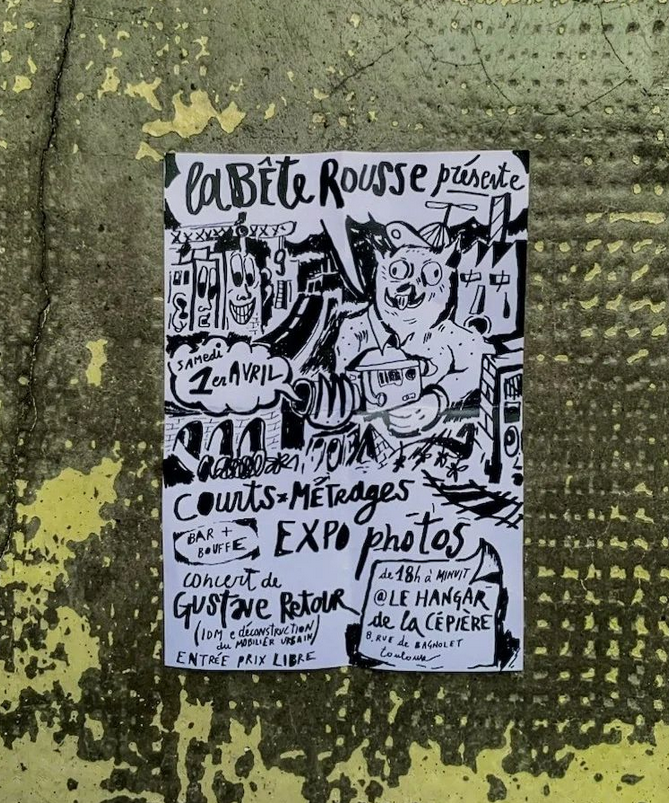 la BÊte ROUSSE présente
SAMEDi
1er AVRIL
COURTS-MÉTRAGES
BAR +
BOUFFE
EXPO photos
concert de
GUSTAVE RETOUR
(IDM e déconstruction
du MOBILIER URBAIN)
ENTRÉE PRIX LIBRE
de 18h à MINUIT
@ LE HANGAR
de la CÉPIÈRE
8, RUE de BAGNOLET
toulouse